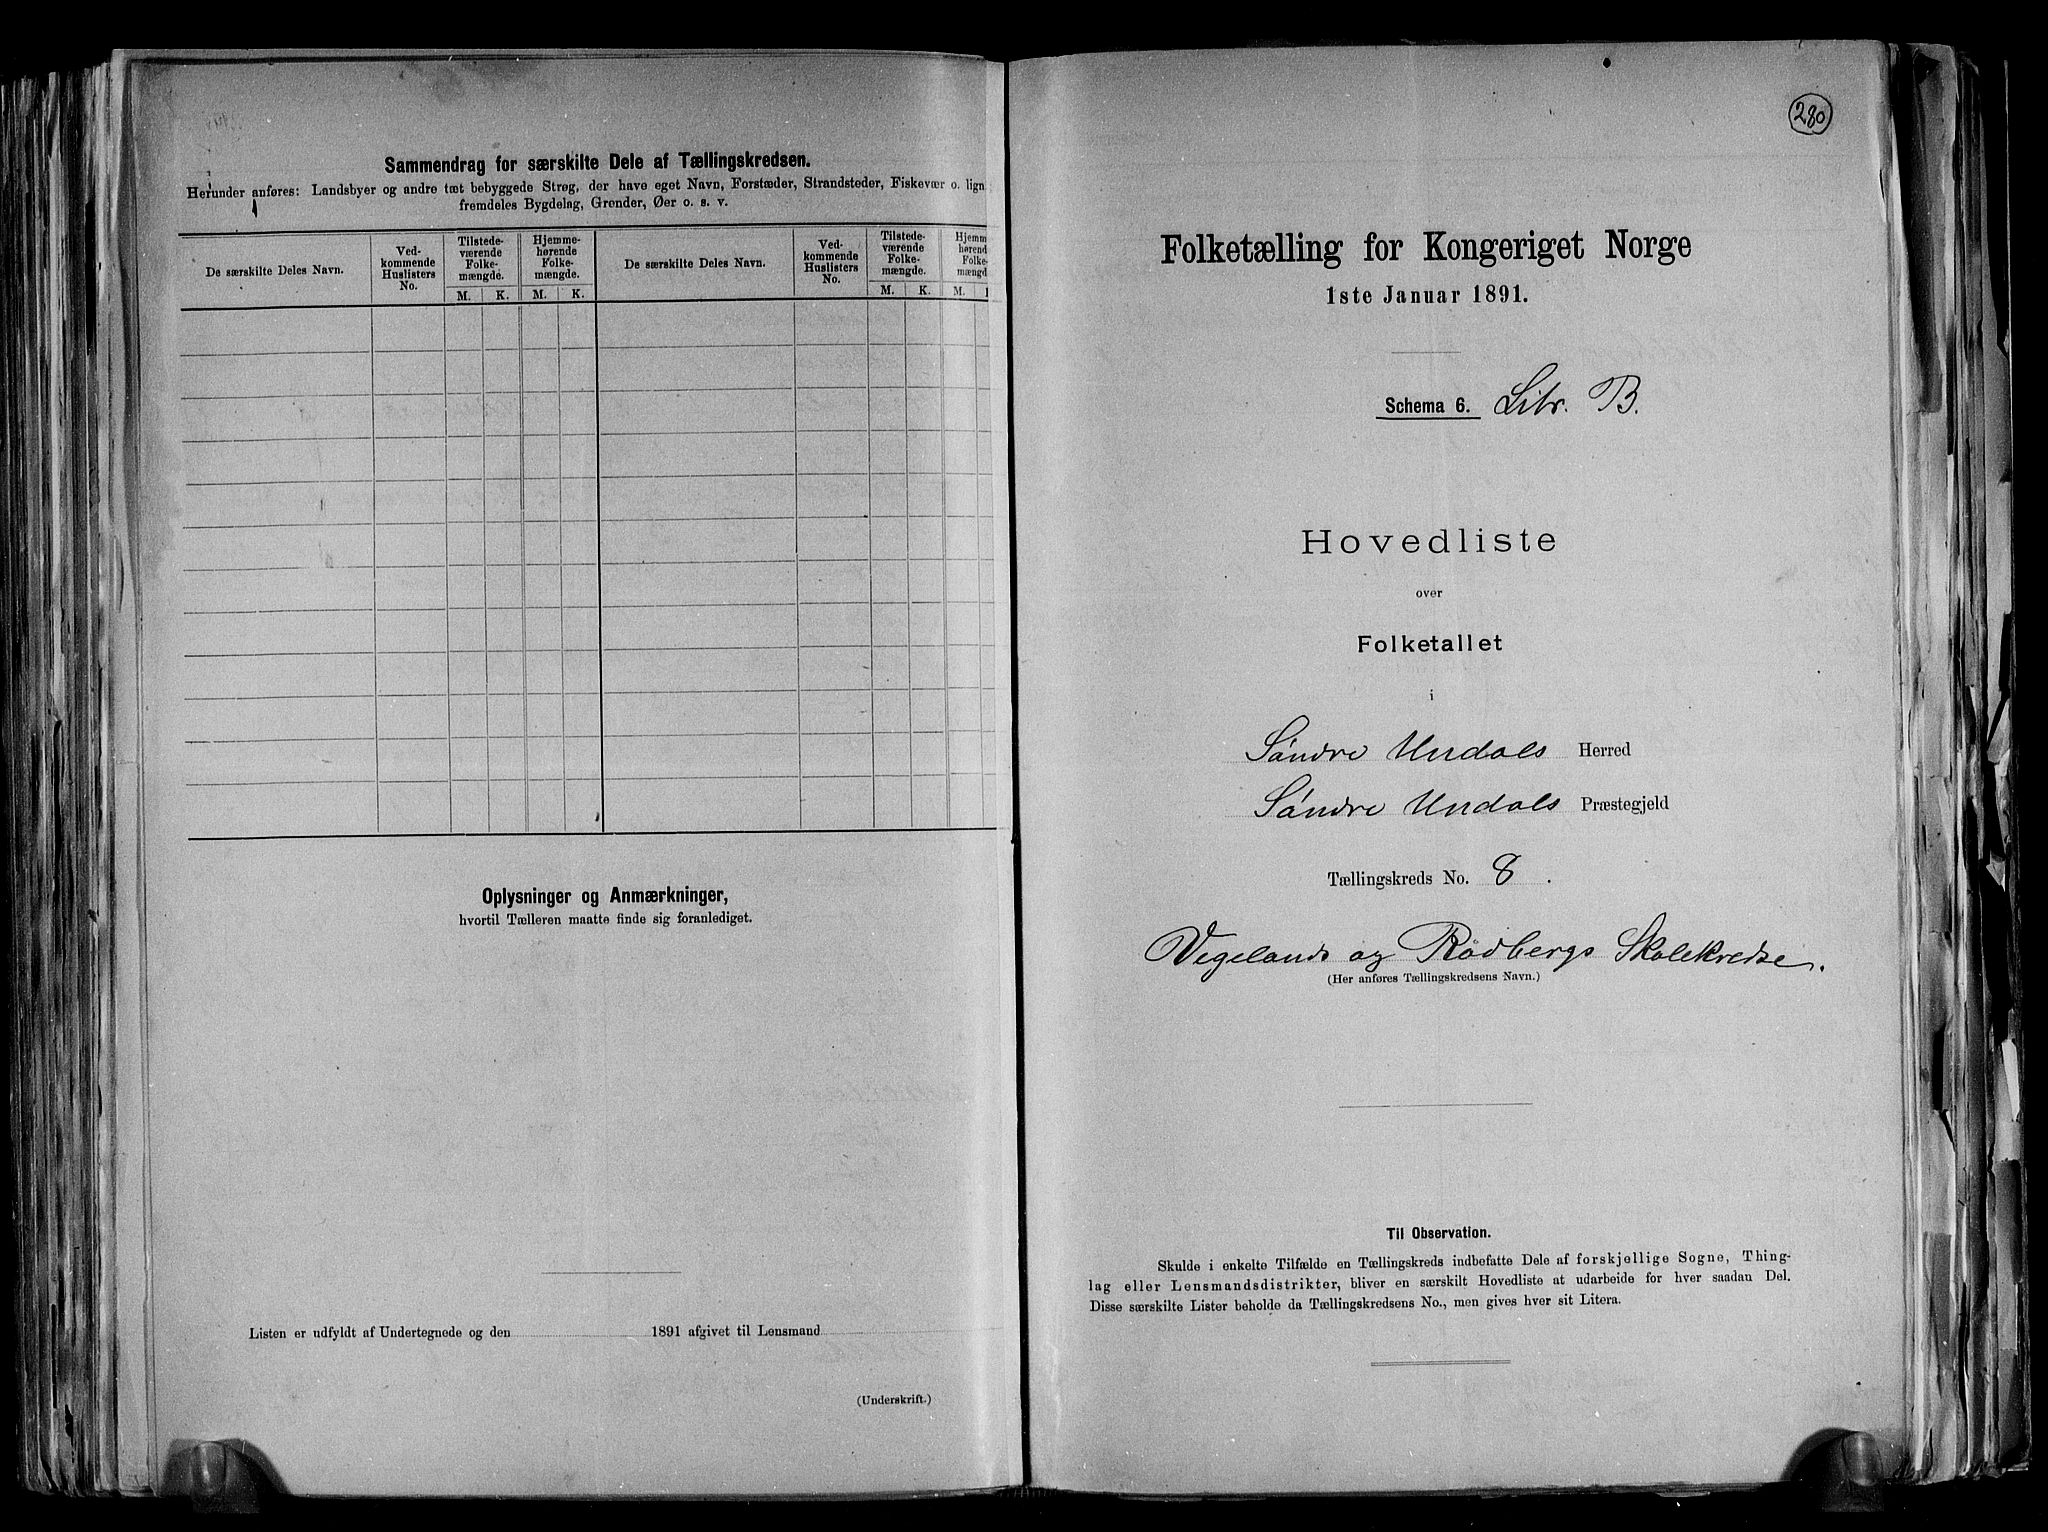 Sammendrag for særskilte Dele af Tællingskredsen.
Herunder anføres: Landsbyer og andre tæt bebyggede Strøg, der have eget Navn, Forstæder, Strandsteder, Fiskevær o. lign
fremdeles Bygdelag, Grender, Øer o. s. v.
De særskilte Deles Navn.
Ved-
kommende
Huslisters
No.
Tilstede-
værende
Folke-
mængde.
Hjemme-
hørende
Folke-
mængde.
M. K. M. K.
De særskilte Deles Navn.
Ved-
kommende
Huslisters
No.
Tilstede-
værende
Folke-
mængde.
Hjemm
hørend
Folke-
mængd
M. K. M.
Oplysninger og Anmærkninger,
hvortil Tælleren maatte finde sig foranlediget.
Listen er udfyldt af Undertegnede og den 1891 afgivet til Lensmand
(Underskrift.)
280
Folketælling for Kongeriget Norge
1ste Januar 1891.
Schema 6. Litr. B.
Hovedliste
over
Folketallet
i
Søndre Undals Herred
Søndre Undals Præstegjeld
Tællingskreds No. 8.
Vegelands og Rødbergs Skolekredse.
(Her anføres Tællingskredsens Navn.)
Til Observation.
Skulde i enkelte Tilfælde en Tællingskreds indbefatte Dele af forskjellige Sogne, Thing-
lag eller Lensmandsdistrikter, bliver en særskilt Hovedliste at udarbeide for hver saadan Del.
Disse særskilte Lister beholde da Tællingskredsens No., men gives hver sit Litera.